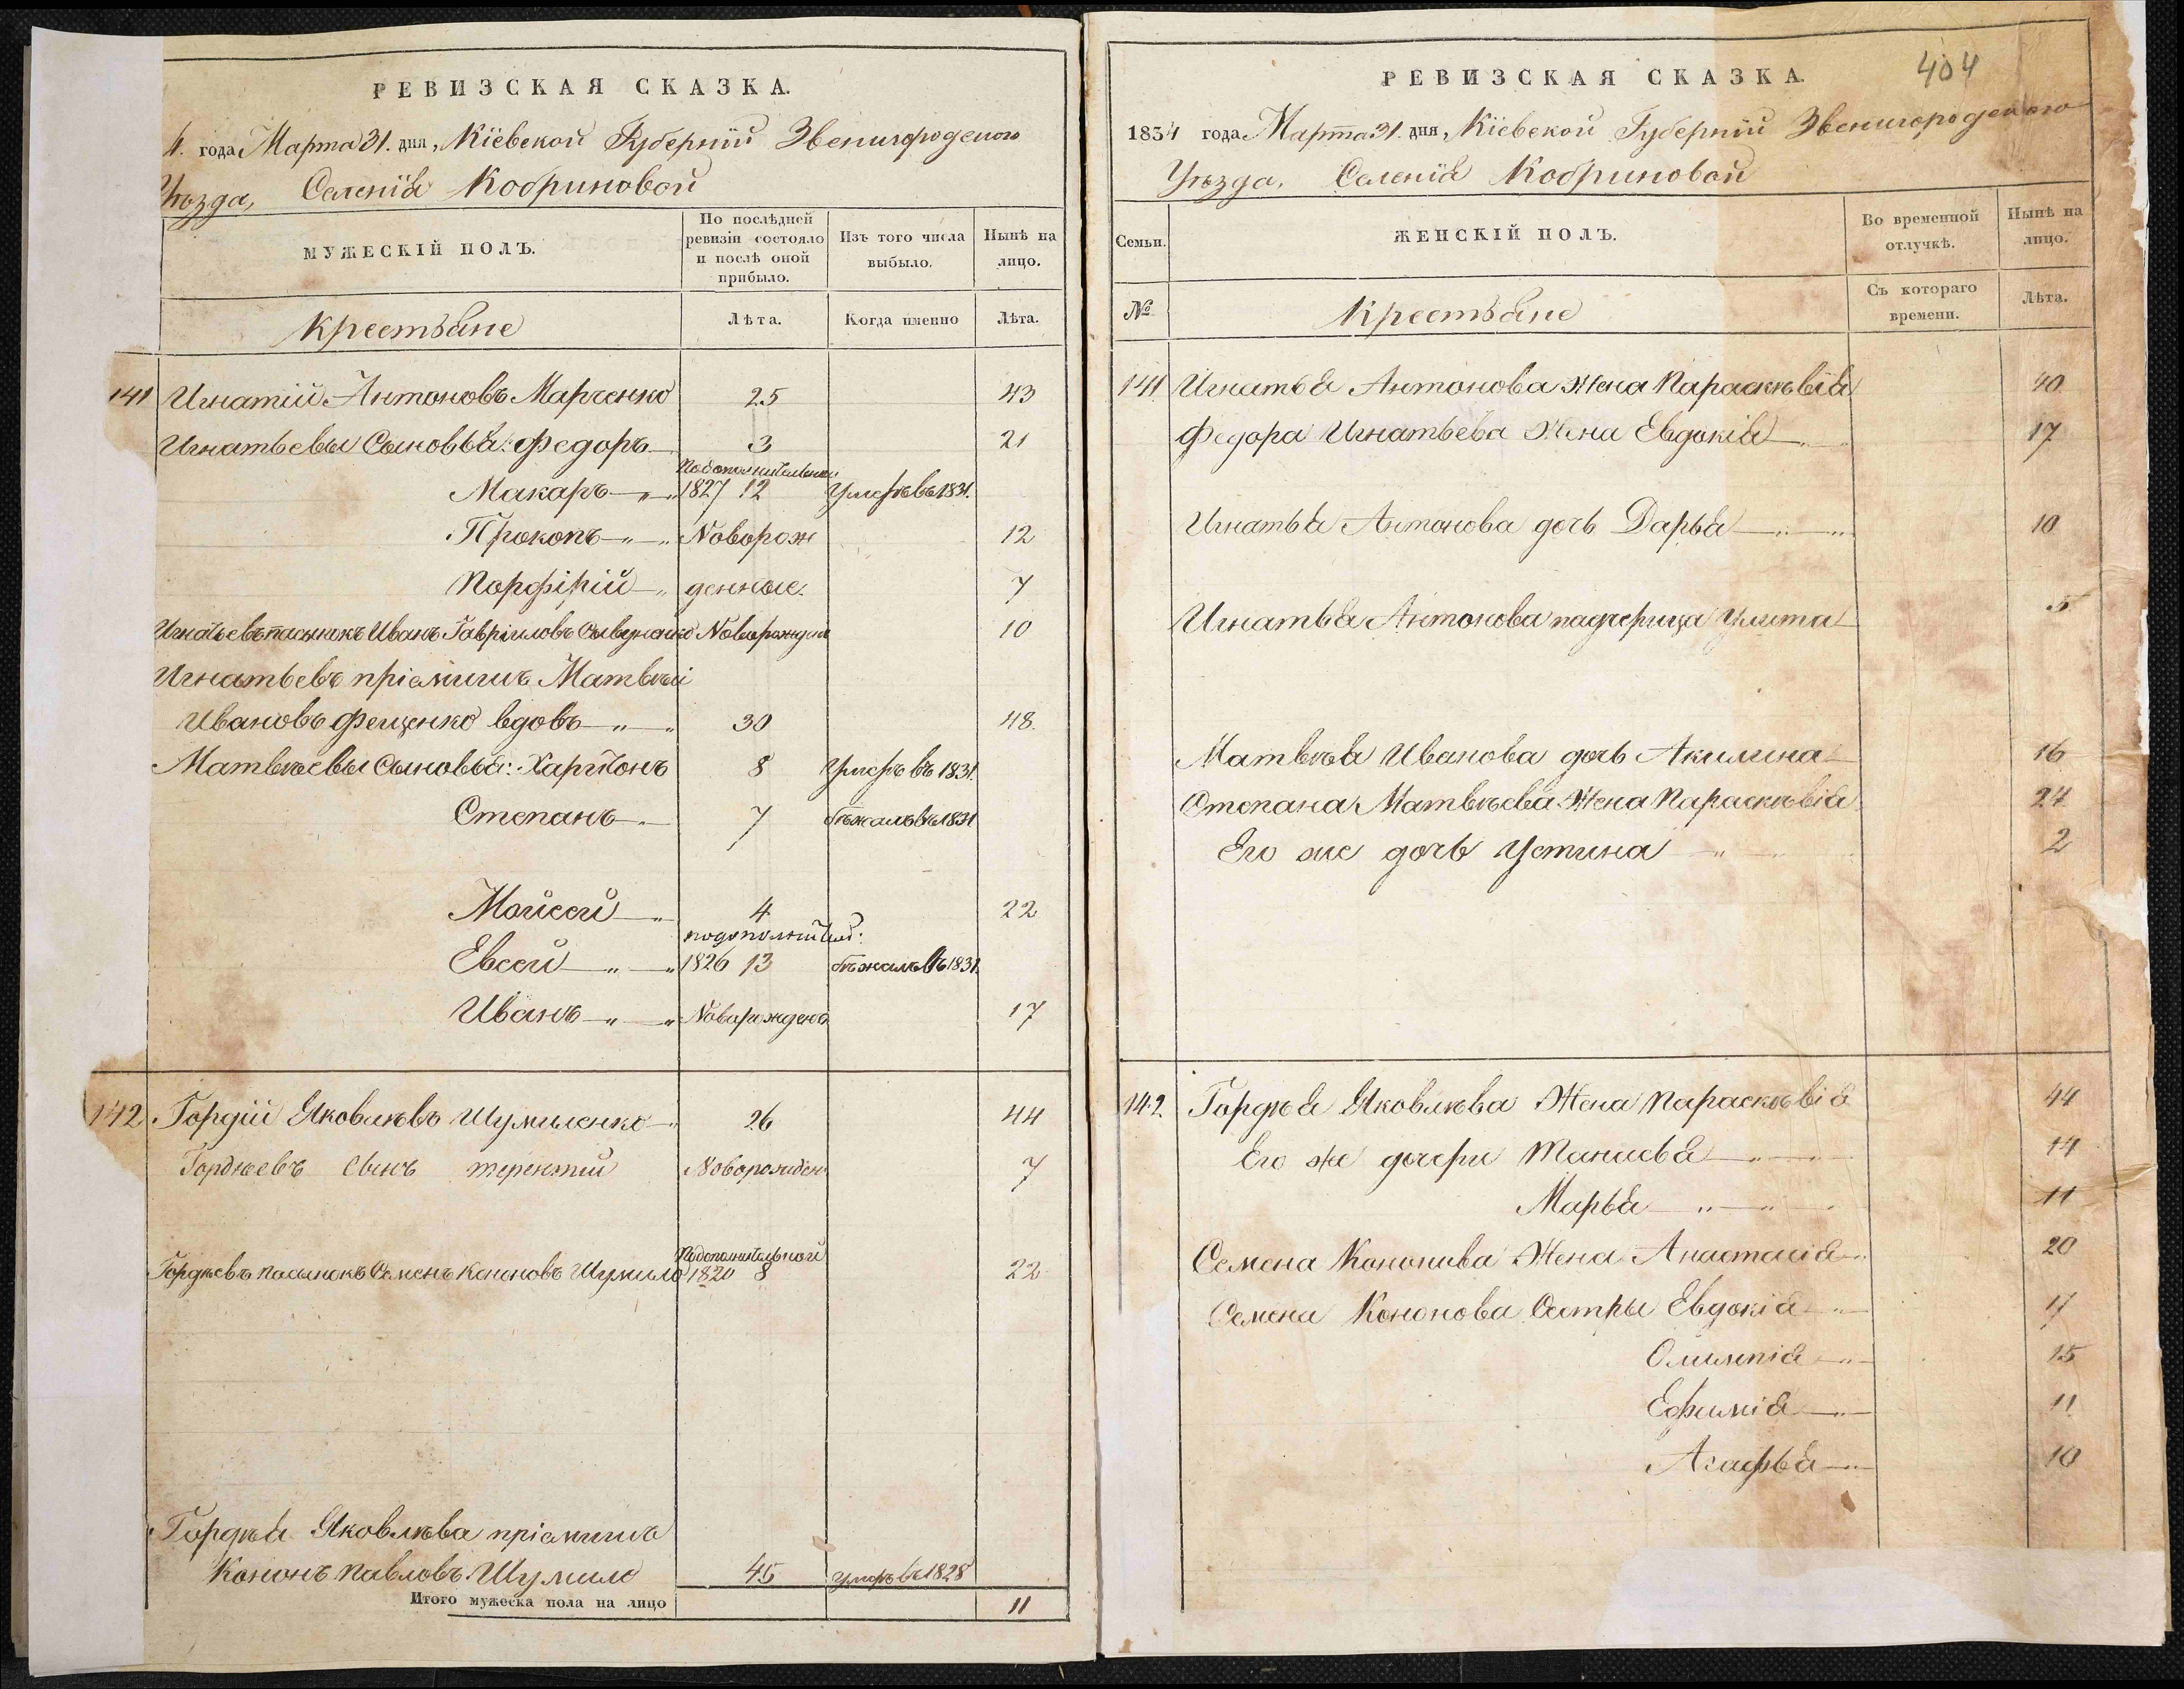 РЕВИЗСКАЯ СКАЗКА.
4. года Марта 31. дня, Кіевской Губерніи Звенигородскаго
Уѣзда, Селенія Кобриновой
МУЖЕСКІЙ ПОЛЪ.
По послѣдней ревизіи состояло и послѣ оной прибыло.
Изъ того числа выбыло.
Нынѣ на лицо.
Крестьяне
Лѣта.
Когда именно
Лѣта.
141 Игнатій Антоновъ Марченко 25 43
Игнатьевы Сыновья: Федоръ 3 21
Подополнительной
Макаръ 1827 12 Умеръ въ 1831.
Прокопъ Новорож 12
Порфірій денные. 7
Игнатьевъ пасынокъ Иванъ Гавріиловъ Новорожден 10
Игнатьевъ пріемышъ Матвѣй
Ивановъ Фещенко вдовъ 30 48.
Матвѣевы Сыновья: Харитонъ 8 Умеръ въ 1831.
Степанъ 7 бѣжалъ въ 1831
Мойсей 4 22
подополнител:
Евсей 1826 13 бѣжалъ въ 1831.
Иванъ Новорожденъ 17
142 Гордій Яковлѣвъ Шумиленко 26 44
Гордѣевъ Сынъ Терентій Новорожден 7
Подополнительной
Гордѣевъ пасынокъ Семенъ Кононовъ Шумило 1820 8 22
Гордѣя Яковлѣва пріемышъ
Кононъ Павловъ Шумило 45 умеръ въ 1828
Итого мужеска пола на лицо 11
404
РЕВИЗСКАЯ СКАЗКА.
1834 года Марта 31. дня, Кіевской Губерніи Звенигородскаго
Уѣзда, Селенія Кобриновой
Семьи.
ЖЕНСКІЙ ПОЛЪ.
Во временной отлучкѣ.
Нынѣ на лицо.
№
Крестьяне
Съ котораго времени.
Лѣта.
141 Игнатья Антонова Жена Параскѣвія 40
Федора Игнатьева Жена Евдокія 17
Игнатья Антонова дочь Дарья 10
Игнатья Антонова падчерица Улита 5
Матвѣя Иванова дочь Акилина 16
Степана Матвѣева Жена Параскѣвія 24
Его же дочь Устина 2
142. Гордѣя Яковлѣва Жена Параскѣвія 44
Его же дочери 14
Марья 11
Семена Кононова Жена Анастасія 20
Семена Кононова Сестры Евдокія 17
Олимпія 15
Ефимія 11
Агафья 10